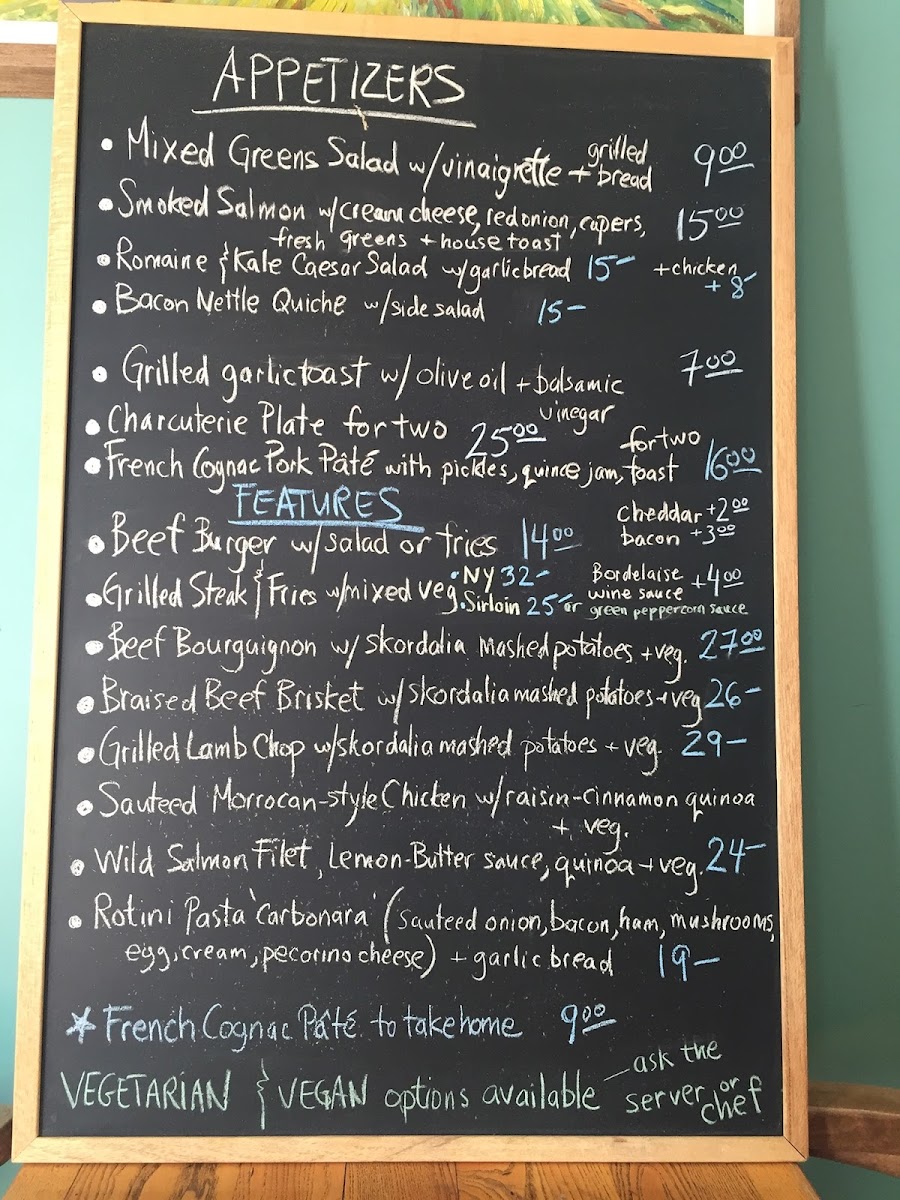 APPETIZERS
• Mixed Greens Salad w/vinaigrette + grilled bread 9.00
• Smoked Salmon w/cream cheese, red onion, capers, 15.00
fresh greens + house toast
• Romaine & Kale Caesar Salad w/garlic bread 15– + chicken + 8–
• Bacon Nettle Quiche w/side salad 15–
• Grilled garlic toast w/ olive oil + balsamic vinegar 7.00
• Charcuterie Plate for two 25.00
• French Cognac Pork Pâté with pickles, quince jam, toast for two 16.00
FEATURES
• Beef Burger w/salad or fries 14.00 cheddar +2.00 bacon +3.00
• Grilled Steak & Fries w/mixed veg. • NY 32– • Sirloin 25– Bordelaise wine sauce or green peppercorn sauce +4.00
• Beef Bourguignon w/ skordalia mashed potatoes + veg. 27.00
• Braised Beef Brisket w/skordalia mashed potatoes + veg 26–
• Grilled Lamb Chop w/skordalia mashed potatoes + veg. 29–
• Sauteed Morrocan-style Chicken w/raisin-cinnamon quinoa
+ veg.
• Wild Salmon Filet, Lemon-Butter sauce, quinoa + veg. 24–
• Rotini Pasta 'Carbonara' (sauteed onion, bacon, ham, mushrooms,
egg, cream, pecorino cheese) + garlic bread 19–
* French Cognac Pâté to take home 9.00
VEGETARIAN & VEGAN options available – ask the server or chef